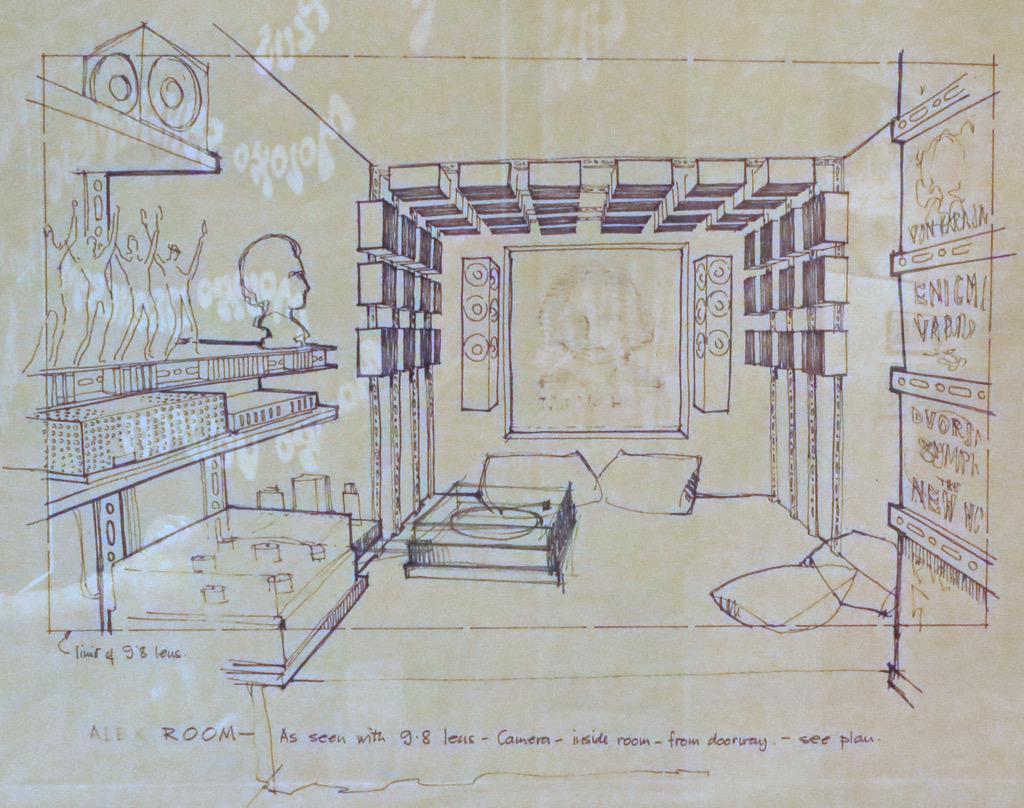 VON KARAJAN
ENIGMA
VARIA
DVORJA
SYMPH
THE
NEW WO
limit of 9·8 lens.
ALEX ROOM — As seen with 9·8 lens - Camera - inside room - from doorway. - see plan.